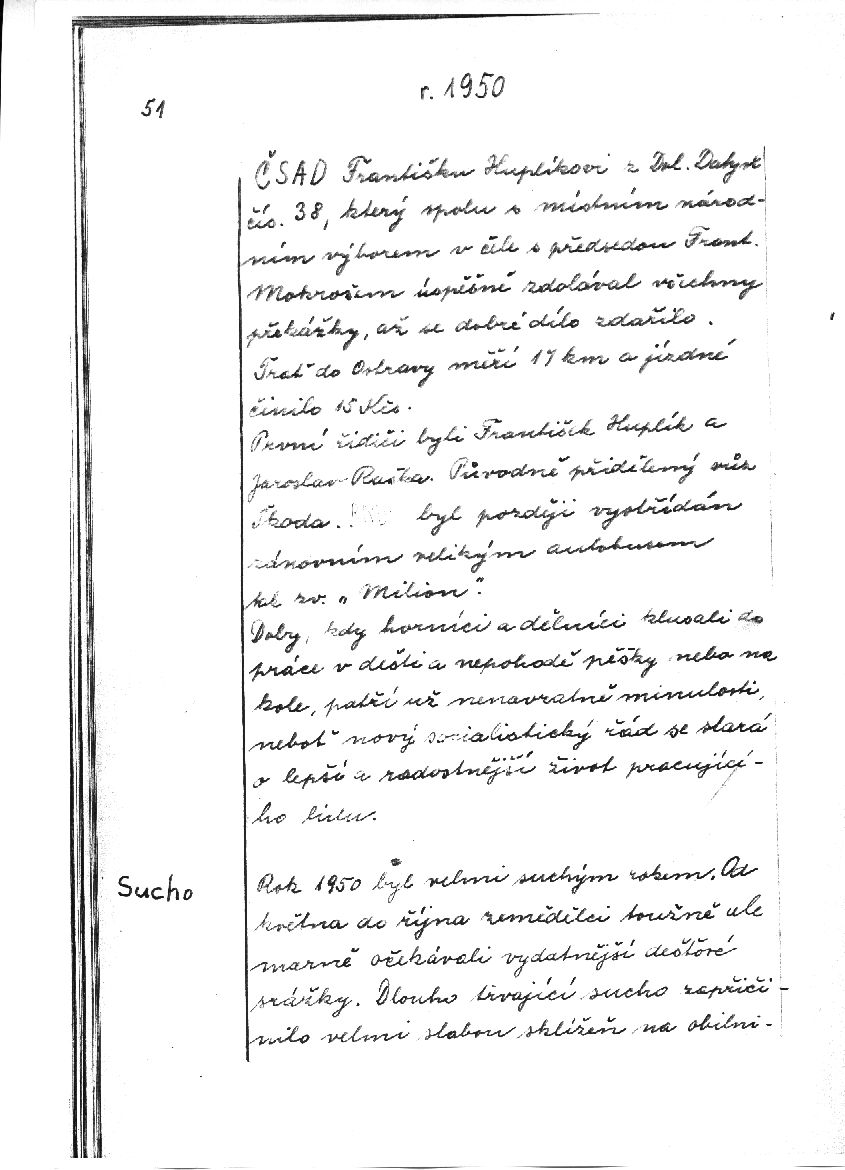 r. 1950
51
ČSAD Františku Huplíkovi z Dol. Datyně
čís. 38, který spolu s místním národ-
ním výborem v čele s předsedou Frant.
Mokrošem úspěšně zdolával všechny
překážky, až se dobré dílo zdařilo.
Trať do Ostravy měří 17 km a jízdné
činilo 15 Kčs.
První řidiči byli František Huplík a
Jaroslav Raška. Původně přidělený vůz
Škoda. byl později vystřídán
zánovním velikým autobusem
tk zv. „Milion".
Doby, kdy horníci a dělníci klusali do
práce v dešti a nepohodě pěšky nebo na
kole, patří už nenavratně minulosti,
neboť nový socialistický řád se stará
o lepší a radostnější život pracující-
ho lidu.
Sucho
Rok 1950 byl velmi suchým rokem. Od
května do října zemědělci toužně ale
marně očekávali vydatnější dešťové
srážky. Dlouho trvající sucho zapříči-
nilo velmi slabou sklizeň na obilni-